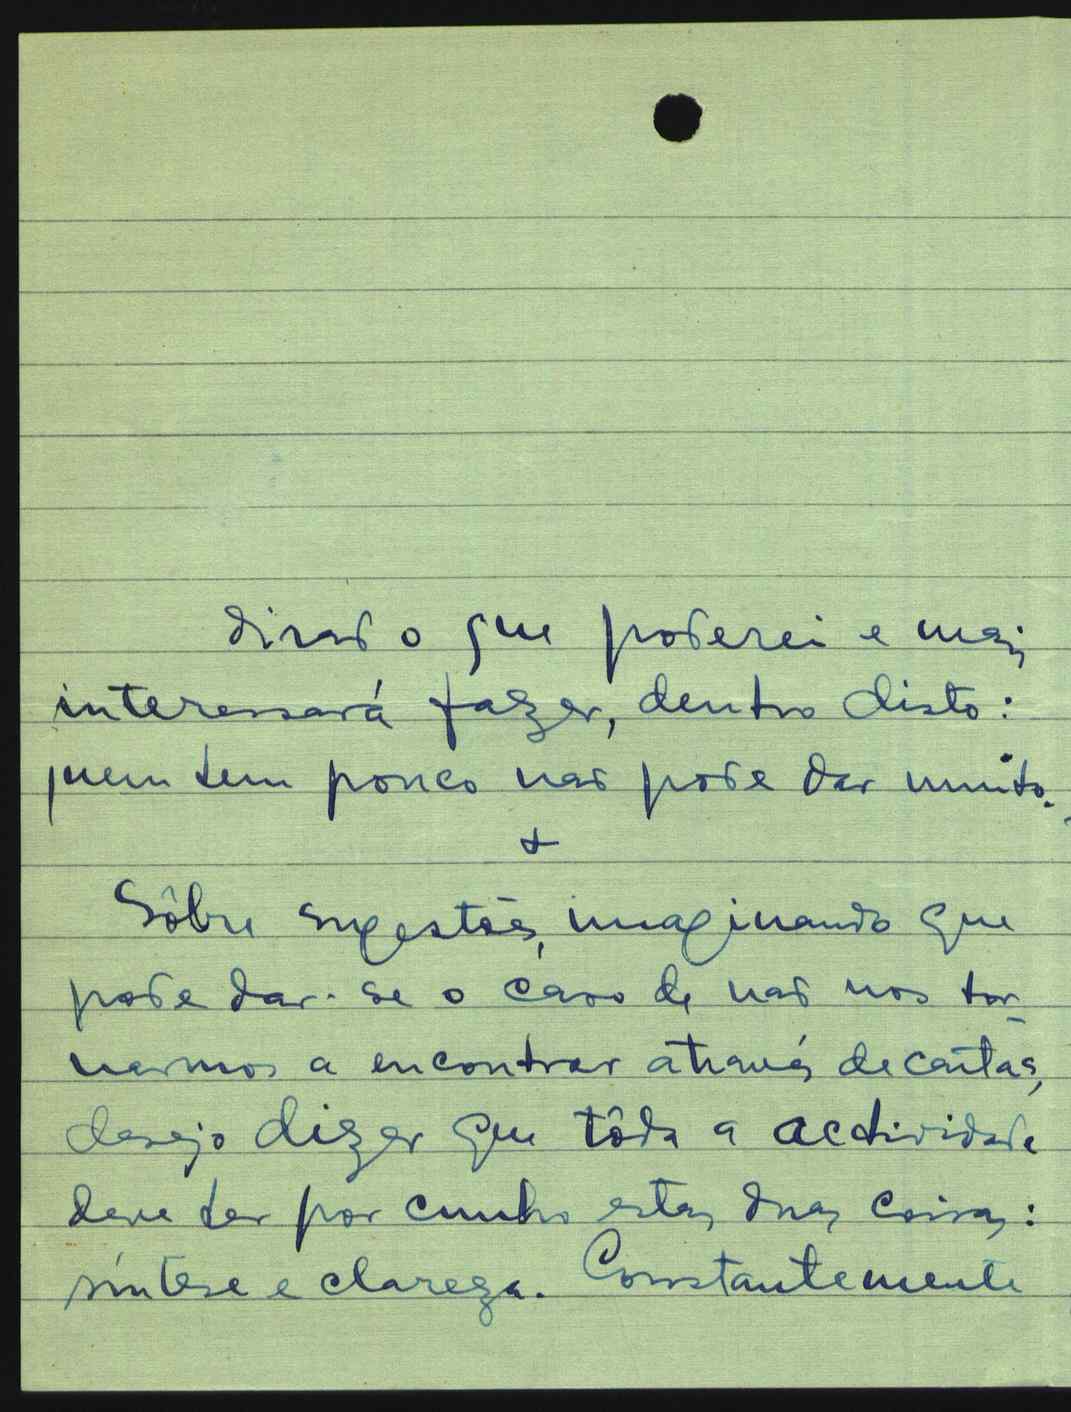 dirão o que poderei e mais
interessará fazer, dentro disto:
quem tem pouco não pode dar muito.
+
Sôbre sugestões, imaginando que
pode dar-se o caso de não nos tor-
narmos a encontrar através de cartas,
desejo dizer que tôda a actividade
deve ter por cunho estas duas coisas:
síntese e clareza. Constantemente